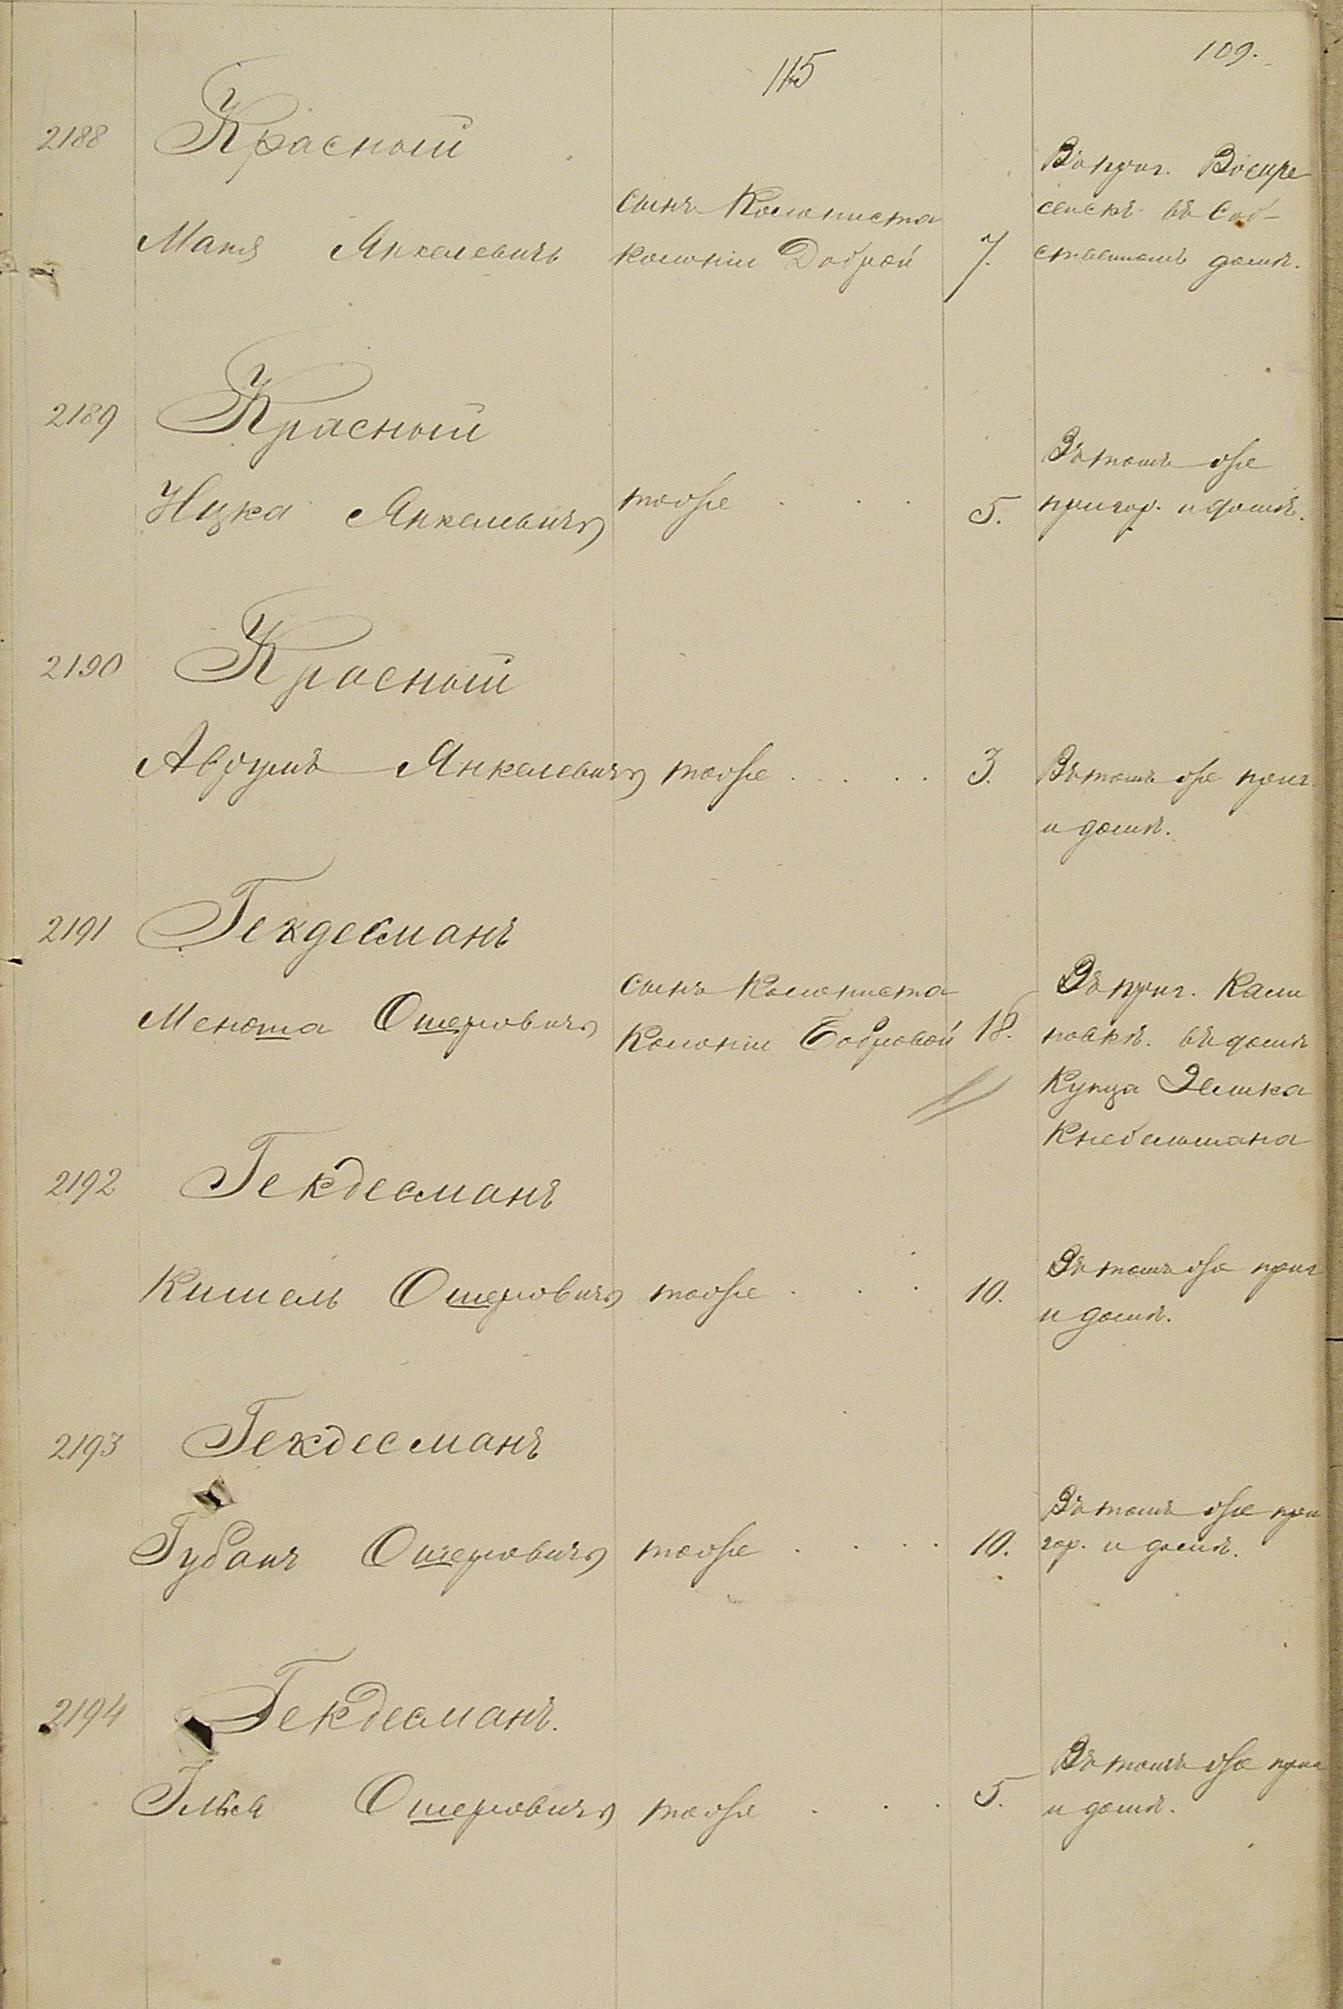 115
109.
2188
Красный
Матя Янкелевичъ
сынъ Колониста
колоніи Доброй
7.
Въ приг. Воскре
сенскѣ въ Соб-
ственномъ домѣ.
2189
Красный
Ицка Янкелевичъ
тоже . . .
5.
Въ томъ же
пригор. и домѣ.
2190
Красный
Аврумъ Янкелевичъ
тоже . . . .
3.
Въ томъ же приг
и домѣ.
2191
Гекдесманъ
Менюша Ошеровичъ
сынъ Колониста
Колоніи Бобровой
18.
Въ приг. Кали
новкѣ. въ домѣ
Купца Зелика
Кнебельмана
2192
Гекдесманъ
Кишель Ошеровичъ
тоже . . .
10.
Въ томъ же приг
и домѣ.
2193
Гекдесманъ
Губанъ Ошеровичъ
тоже . . . .
10.
Въ томъ же при
гор. и домѣ.
2194
Гекдесманъ.
Ошеровичъ
тоже . . .
5.
Въ томъ же приг
и домѣ.